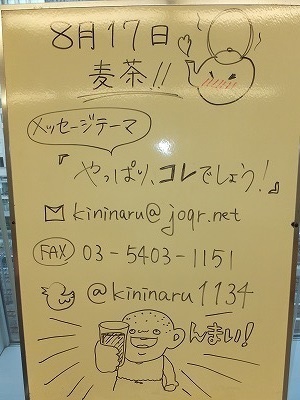 8月17日
麦茶!!
メッセージテーマ
『やっぱり、コレでしょう!』
kininaru@joqr.net
FAX 03-5403-1151
@kininaru1134
んまい!